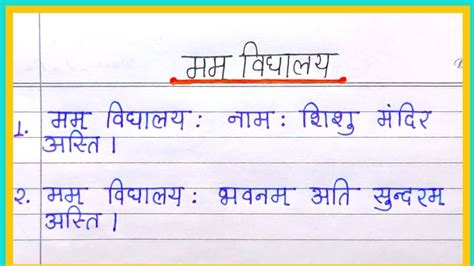 मम विद्यालय
1. मम् विद्यालय: नाम: शिशु मंदिर
अस्ति।
२. मम् विद्यालय: भवनम् अति सुन्दरम्
अस्ति।